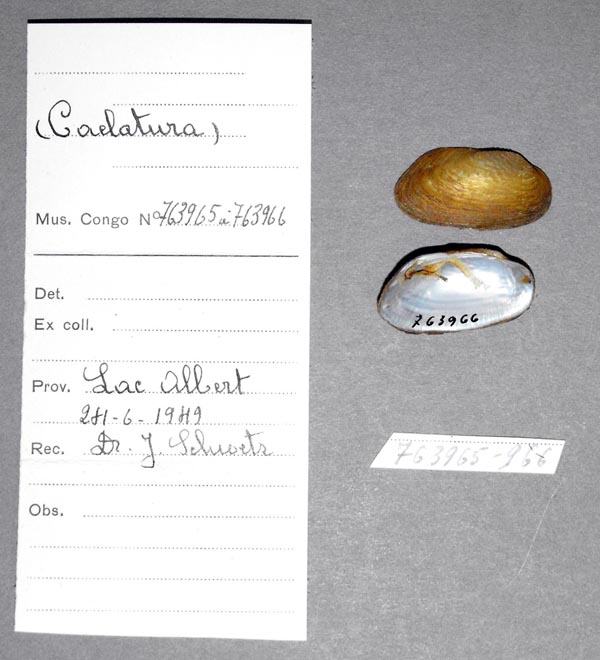 (Caelatura)
Mus. Congo No 763965 à 763966
Det.
Ex coll.
Prov. Lac Albert
Rec. Dr. J. Schwetz
Obs.
763966
763965-966